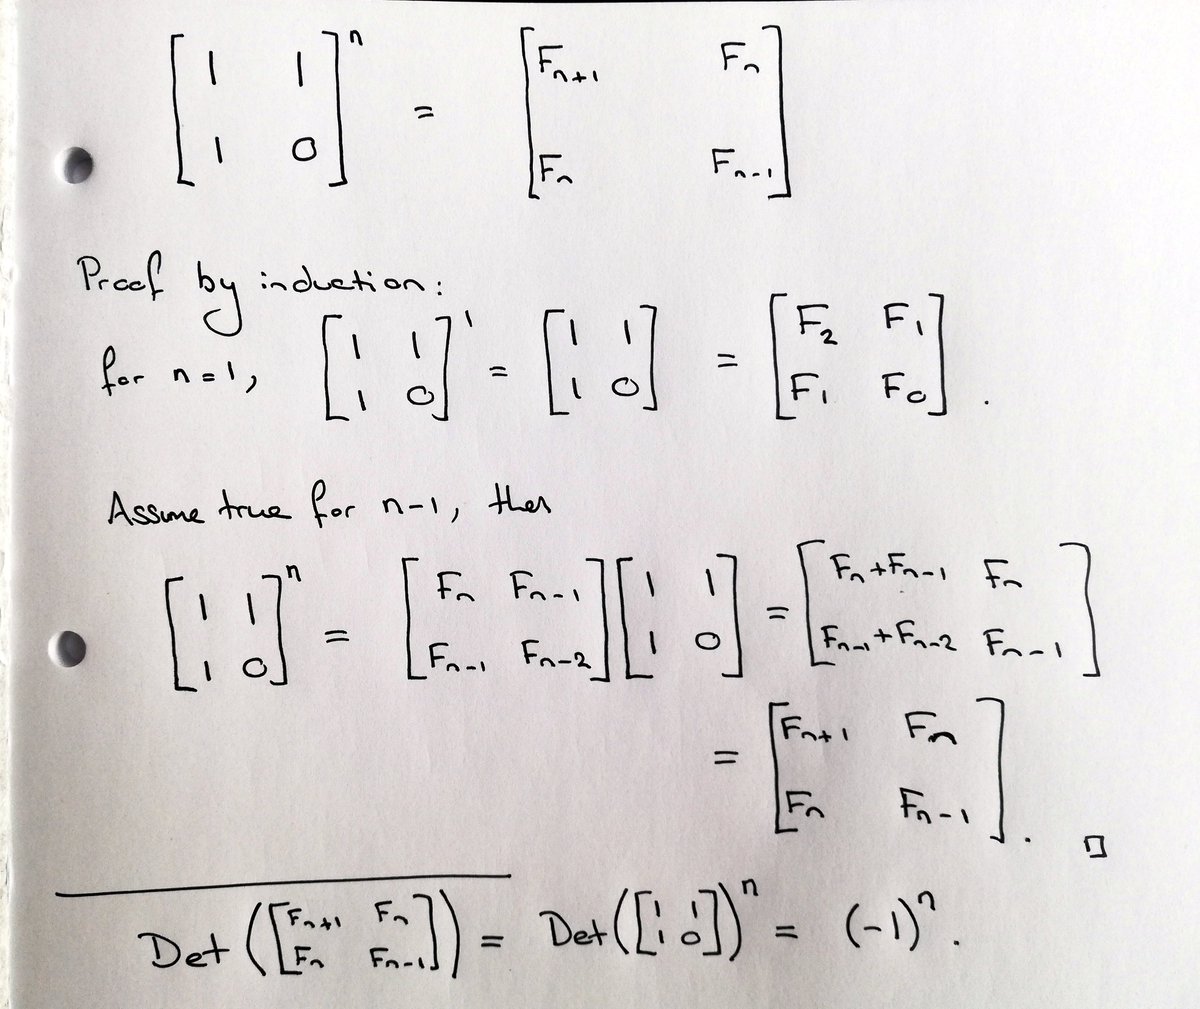 [1 1; 1 0]^n = [F_{n+1} F_n; F_n F_{n-1}]
Proof by induction:
for n=1, [1 1; 1 0]^1 = [1 1; 1 0] = [F_2 F_1; F_1 F_0].
Assume true for n-1, then
[1 1; 1 0]^n = [F_n F_{n-1}; F_{n-1} F_{n-2}][1 1; 1 0] = [F_n+F_{n-1} F_n; F_{n-1}+F_{n-2} F_{n-1}]
= [F_{n+1} F_n; F_n F_{n-1}]. □
Det([F_{n+1} F_n; F_n F_{n-1}]) = Det([1 1; 1 0])^n = (-1)^n.